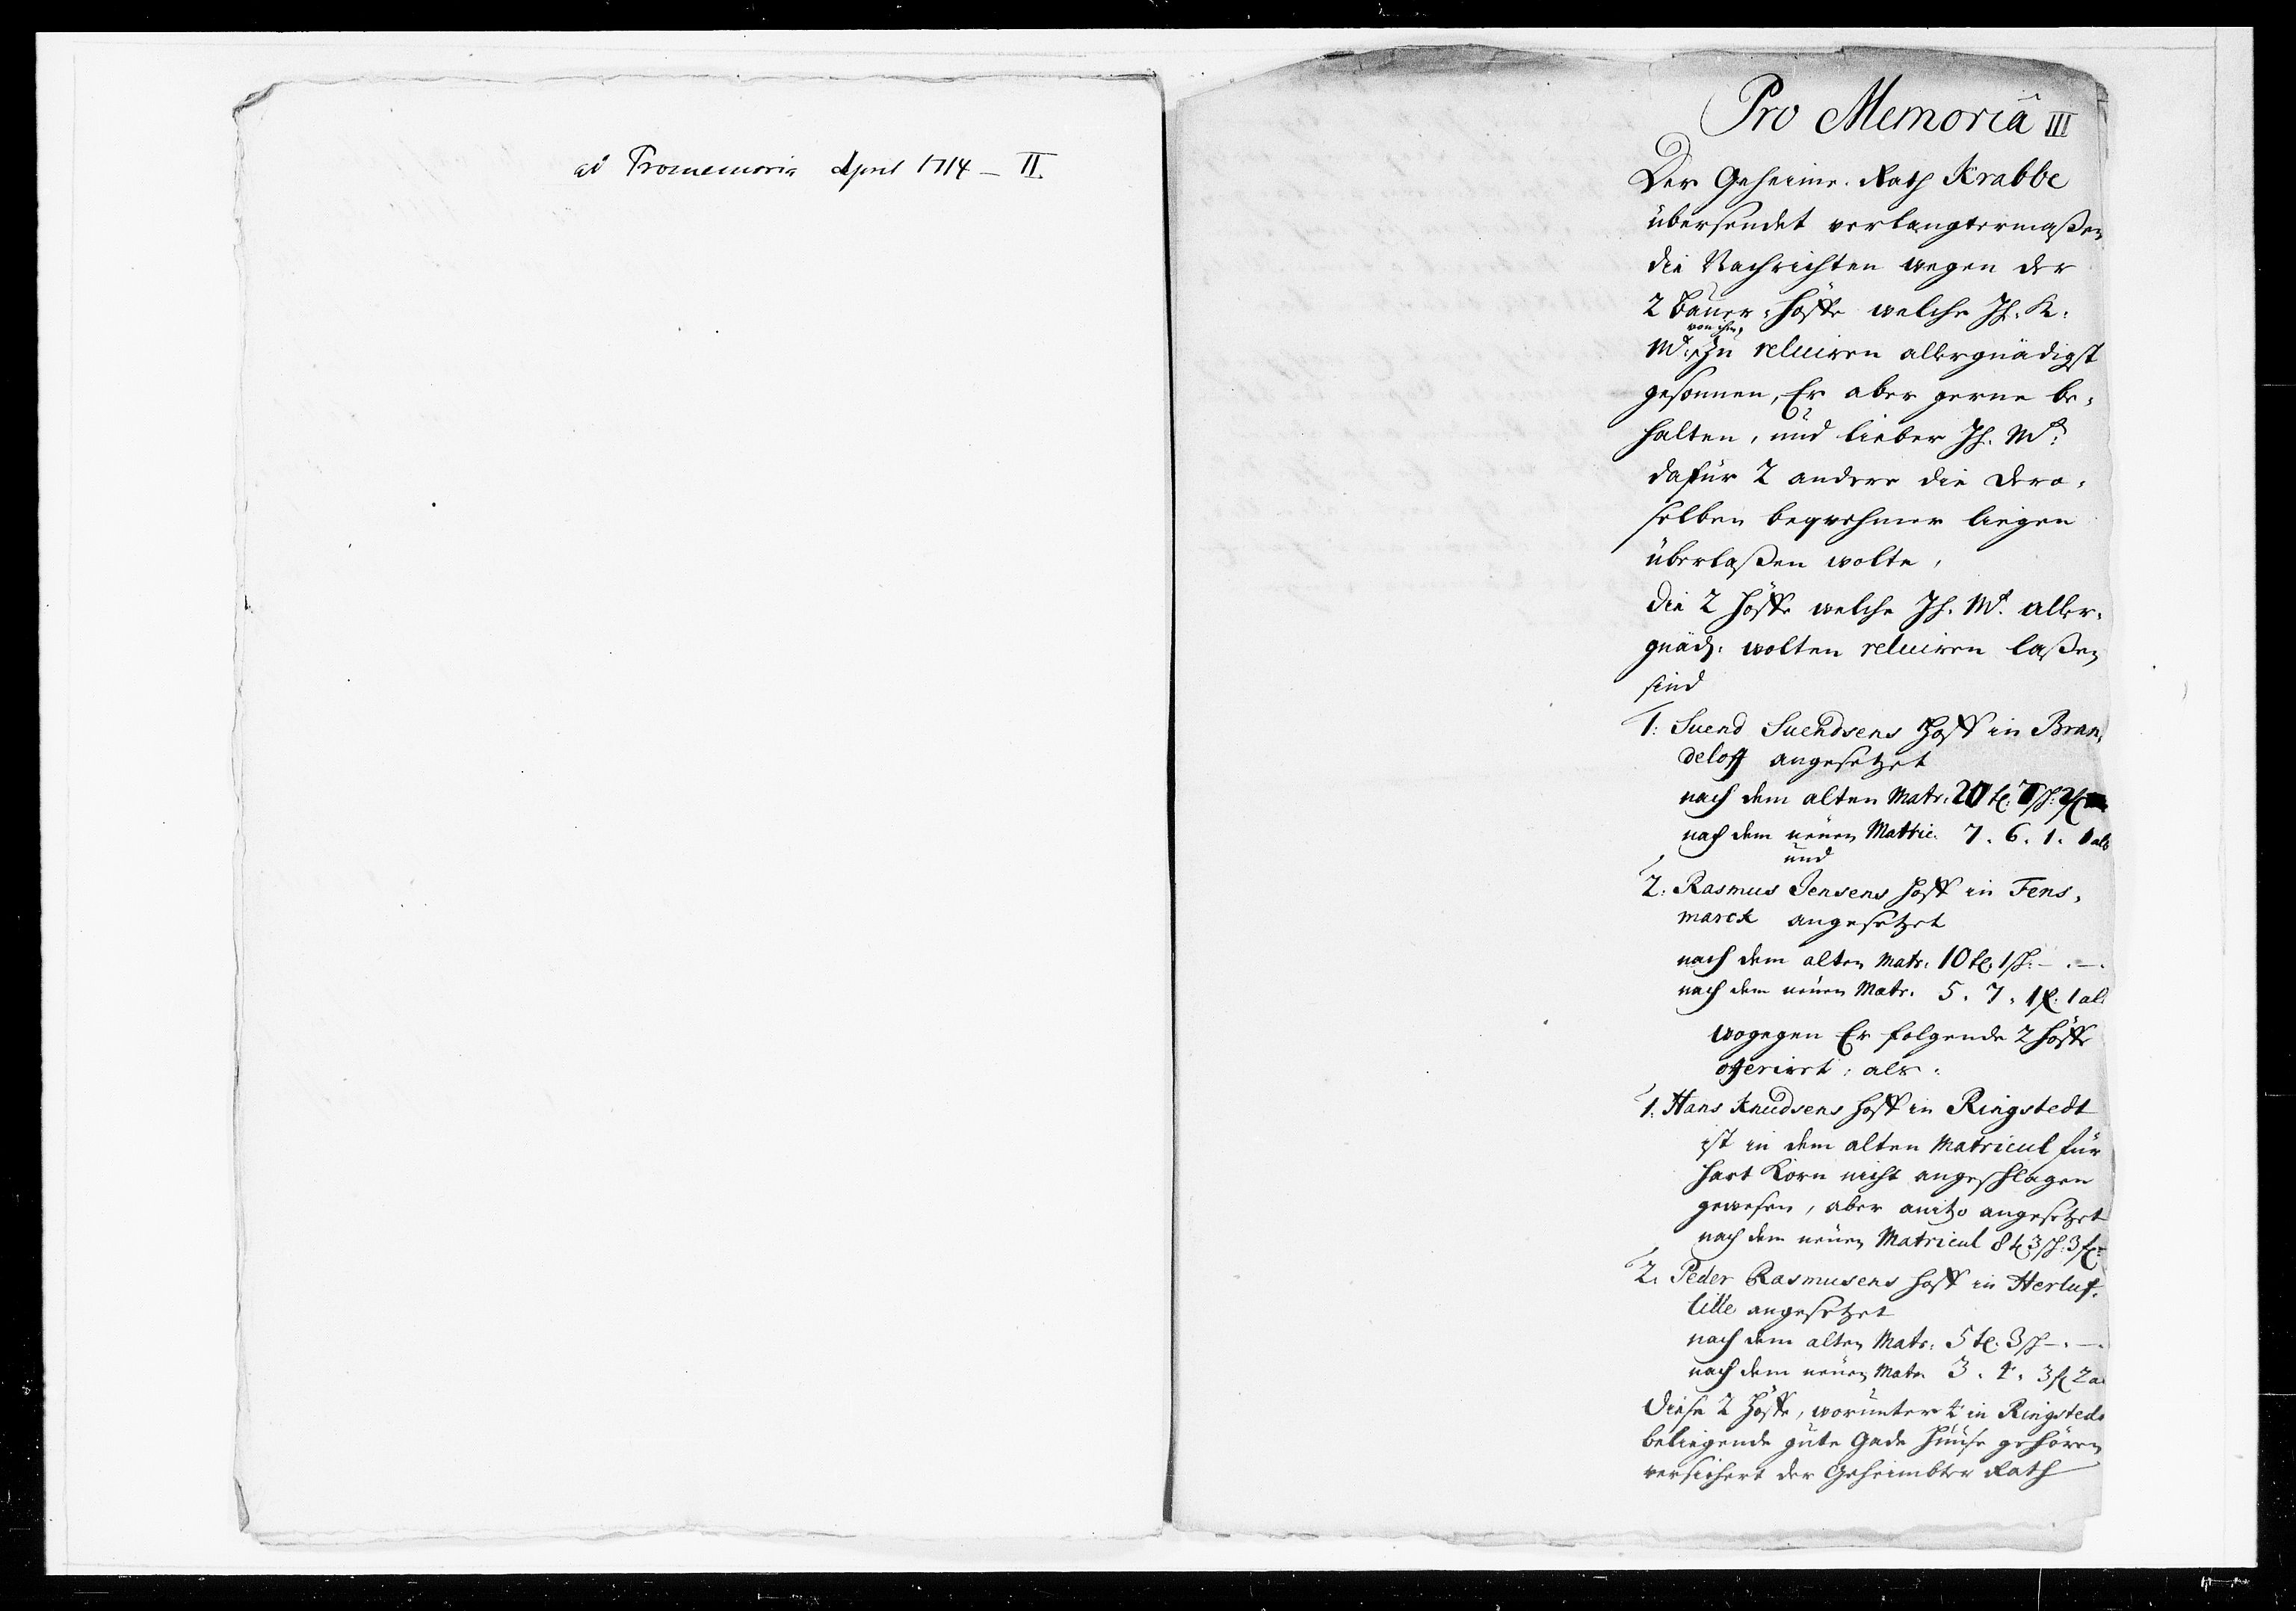 ad Promemoria April 1714 – II.
Pro Memoriâ III
Der Geheime-Rath Krabbe
übersendet verlangtermaßen
die Nachrichten wegen der
2 Bauer-Höffe welche Ih. K.
von ihm
Mt: zu reluiren allergnädigst
gesonnen, Er aber gerne be-
halten, und lieber Ih. Mt:
dafür 2 andere die dero-
selben beqvehmer liegen
überlaßen wolte,
Die 2 Höffe welche Ih. Mt. aller-
gnäd: wolten reluiren laßen
sind
1: Suend Suendsens Hoff in Bran-
deloff angesetzet
nach dem alten Matr. 20 t:
nach dem neuen Matric. 7. 6. 1. 1 alb
und
2: Rasmus Jensens Hoff in Fens-
marck angesetzet
nach dem alten Matr. 10 t: 1 ß: – . – .
nach dem neuen Matr. 5. 7. 1 f. 1 al:
wogegen Er folgende 2 Höffe
offerirt: als:
1. Hans Knudsens Hoff in Ringstedt
ist in dem alten Matricul für
Hart Korn nicht angeschlagen
gewesen, aber anitzo angesetzet
nach dem neuen Matricul 8 t 3 ß: 3 f.
2. Peder Rasmusens Hoff in Herluf-
lille angesetzet
nach dem alten Matr. 5 t. 3 ß – . – .
nach dem neuen Matr. 3. 4. 3 f 2 a
Diese 2 Höffe, worunter 4 in Ringsted
beliegende gute Gade Häuse gehören
versichert der Geheimbter Rath